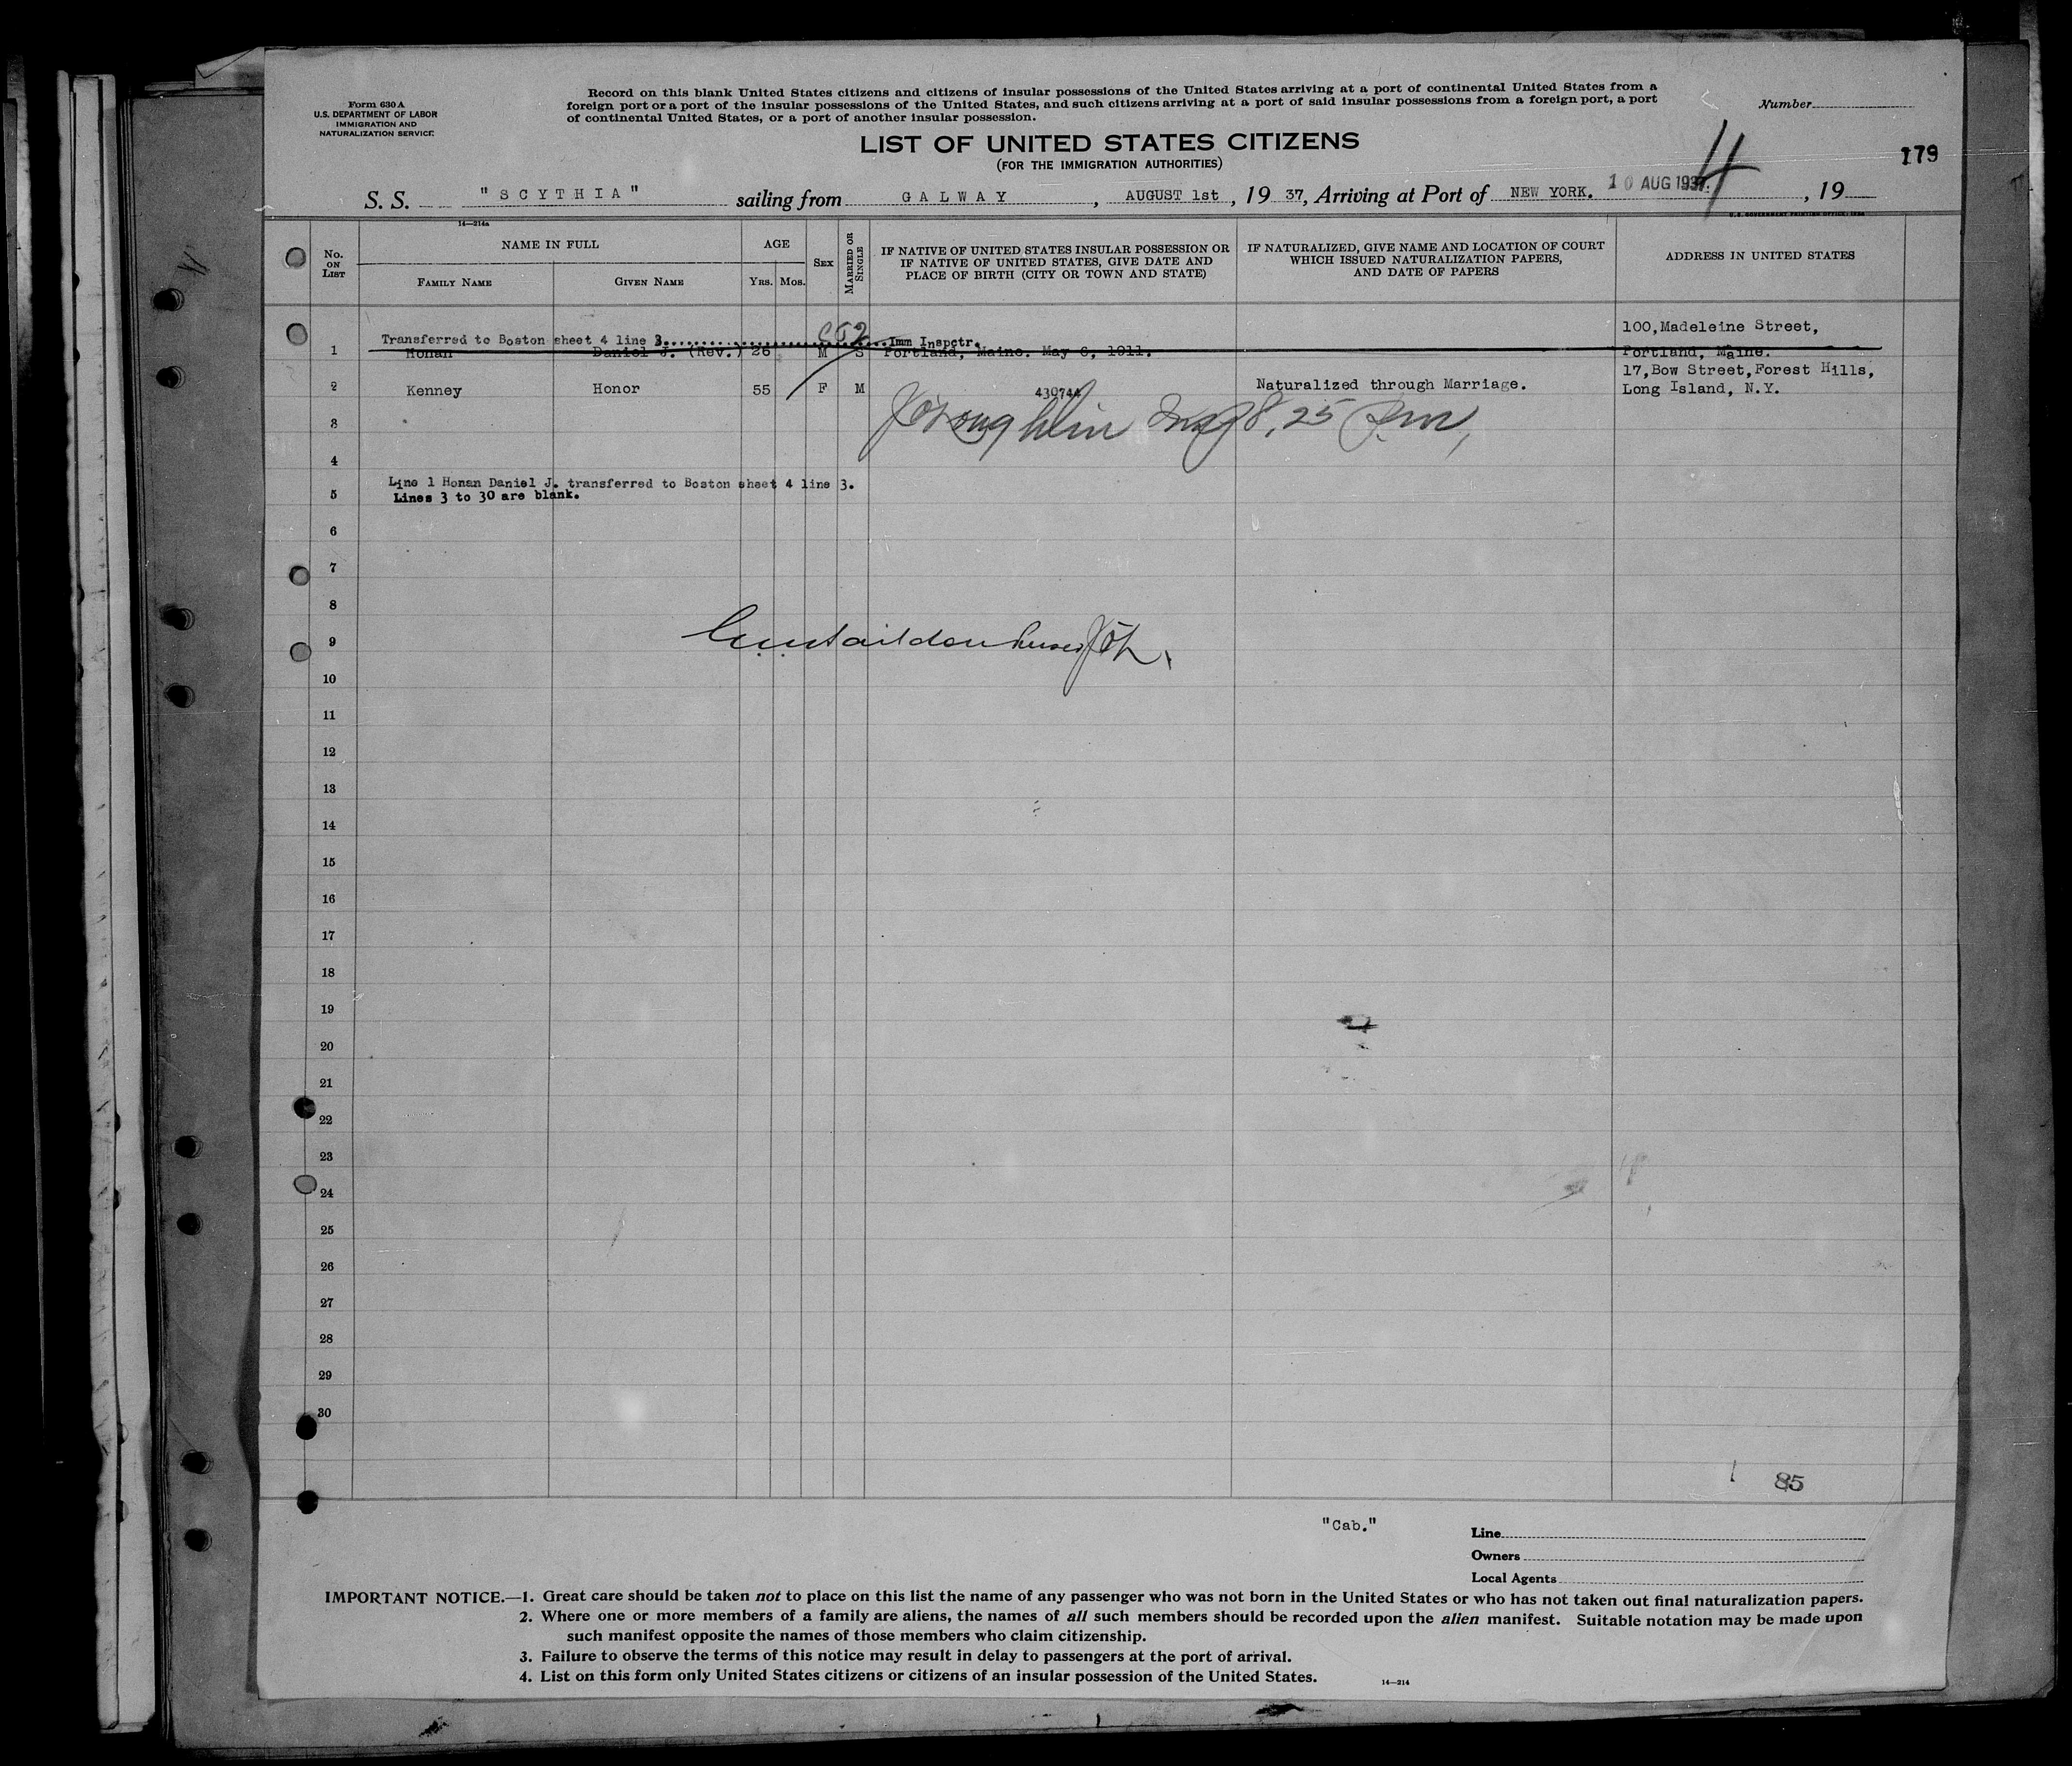 Form 630 A
U.S. DEPARTMENT OF LABOR
IMMIGRATION AND
NATURALIZATION SERVICE
Record on this blank United States citizens and citizens of insular possessions of the United States arriving at a port of continental United States from a
foreign port or a port of the insular possessions of the United States, and such citizens arriving at a port of said insular possessions from a foreign port, a port
of continental United States, or a port of another insular possession.
Number
LIST OF UNITED STATES CITIZENS
(FOR THE IMMIGRATION AUTHORITIES)
4
179
S. S. "SCYTHIA" sailing from GALWAY, AUGUST 1st, 19 37, Arriving at Port of NEW YORK. 10 AUG 1937, 19
14—214a
No. ON LIST
NAME IN FULL
FAMILY NAME
GIVEN NAME
AGE
YRS. MOS.
SEX
MARRIED OR SINGLE
IF NATIVE OF UNITED STATES INSULAR POSSESSION OR
IF NATIVE OF UNITED STATES, GIVE DATE AND
PLACE OF BIRTH (CITY OR TOWN AND STATE)
IF NATURALIZED, GIVE NAME AND LOCATION OF COURT
WHICH ISSUED NATURALIZATION PAPERS,
AND DATE OF PAPERS
ADDRESS IN UNITED STATES
Transferred to Boston sheet 4 line 3. Imm Inspctr.
100, Madeleine Street,
1 Honan Daniel J. (Rev.) 26 M S Portland, Maine. May 6, 1911. Portland, Maine.
17, Bow Street, Forest Hills,
2 Kenney Honor 55 F M 430744 Naturalized through Marriage. Long Island, N.Y.
3
4
Line 1 Honan Daniel J. transferred to Boston sheet 4 line 3.
5 Lines 3 to 30 are blank.
6
7
8
9
10
11
12
13
14
15
16
17
18
19
20
21
22
23
24
25
26
27
28
29
30
85
"Cab."
Line
Owners
Local Agents
IMPORTANT NOTICE.—1. Great care should be taken not to place on this list the name of any passenger who was not born in the United States or who has not taken out final naturalization papers.
2. Where one or more members of a family are aliens, the names of all such members should be recorded upon the alien manifest. Suitable notation may be made upon
such manifest opposite the names of those members who claim citizenship.
3. Failure to observe the terms of this notice may result in delay to passengers at the port of arrival.
4. List on this form only United States citizens or citizens of an insular possession of the United States.
14—214